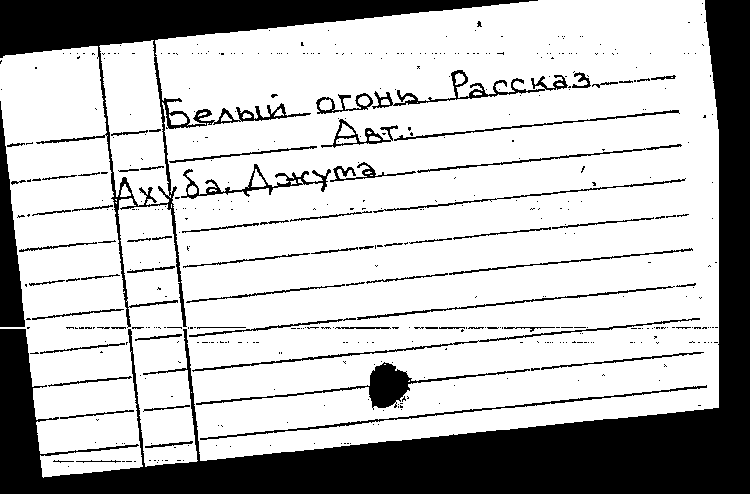 Белый огонь. Рассказ.
Авт.:
Ахуба, Джума.